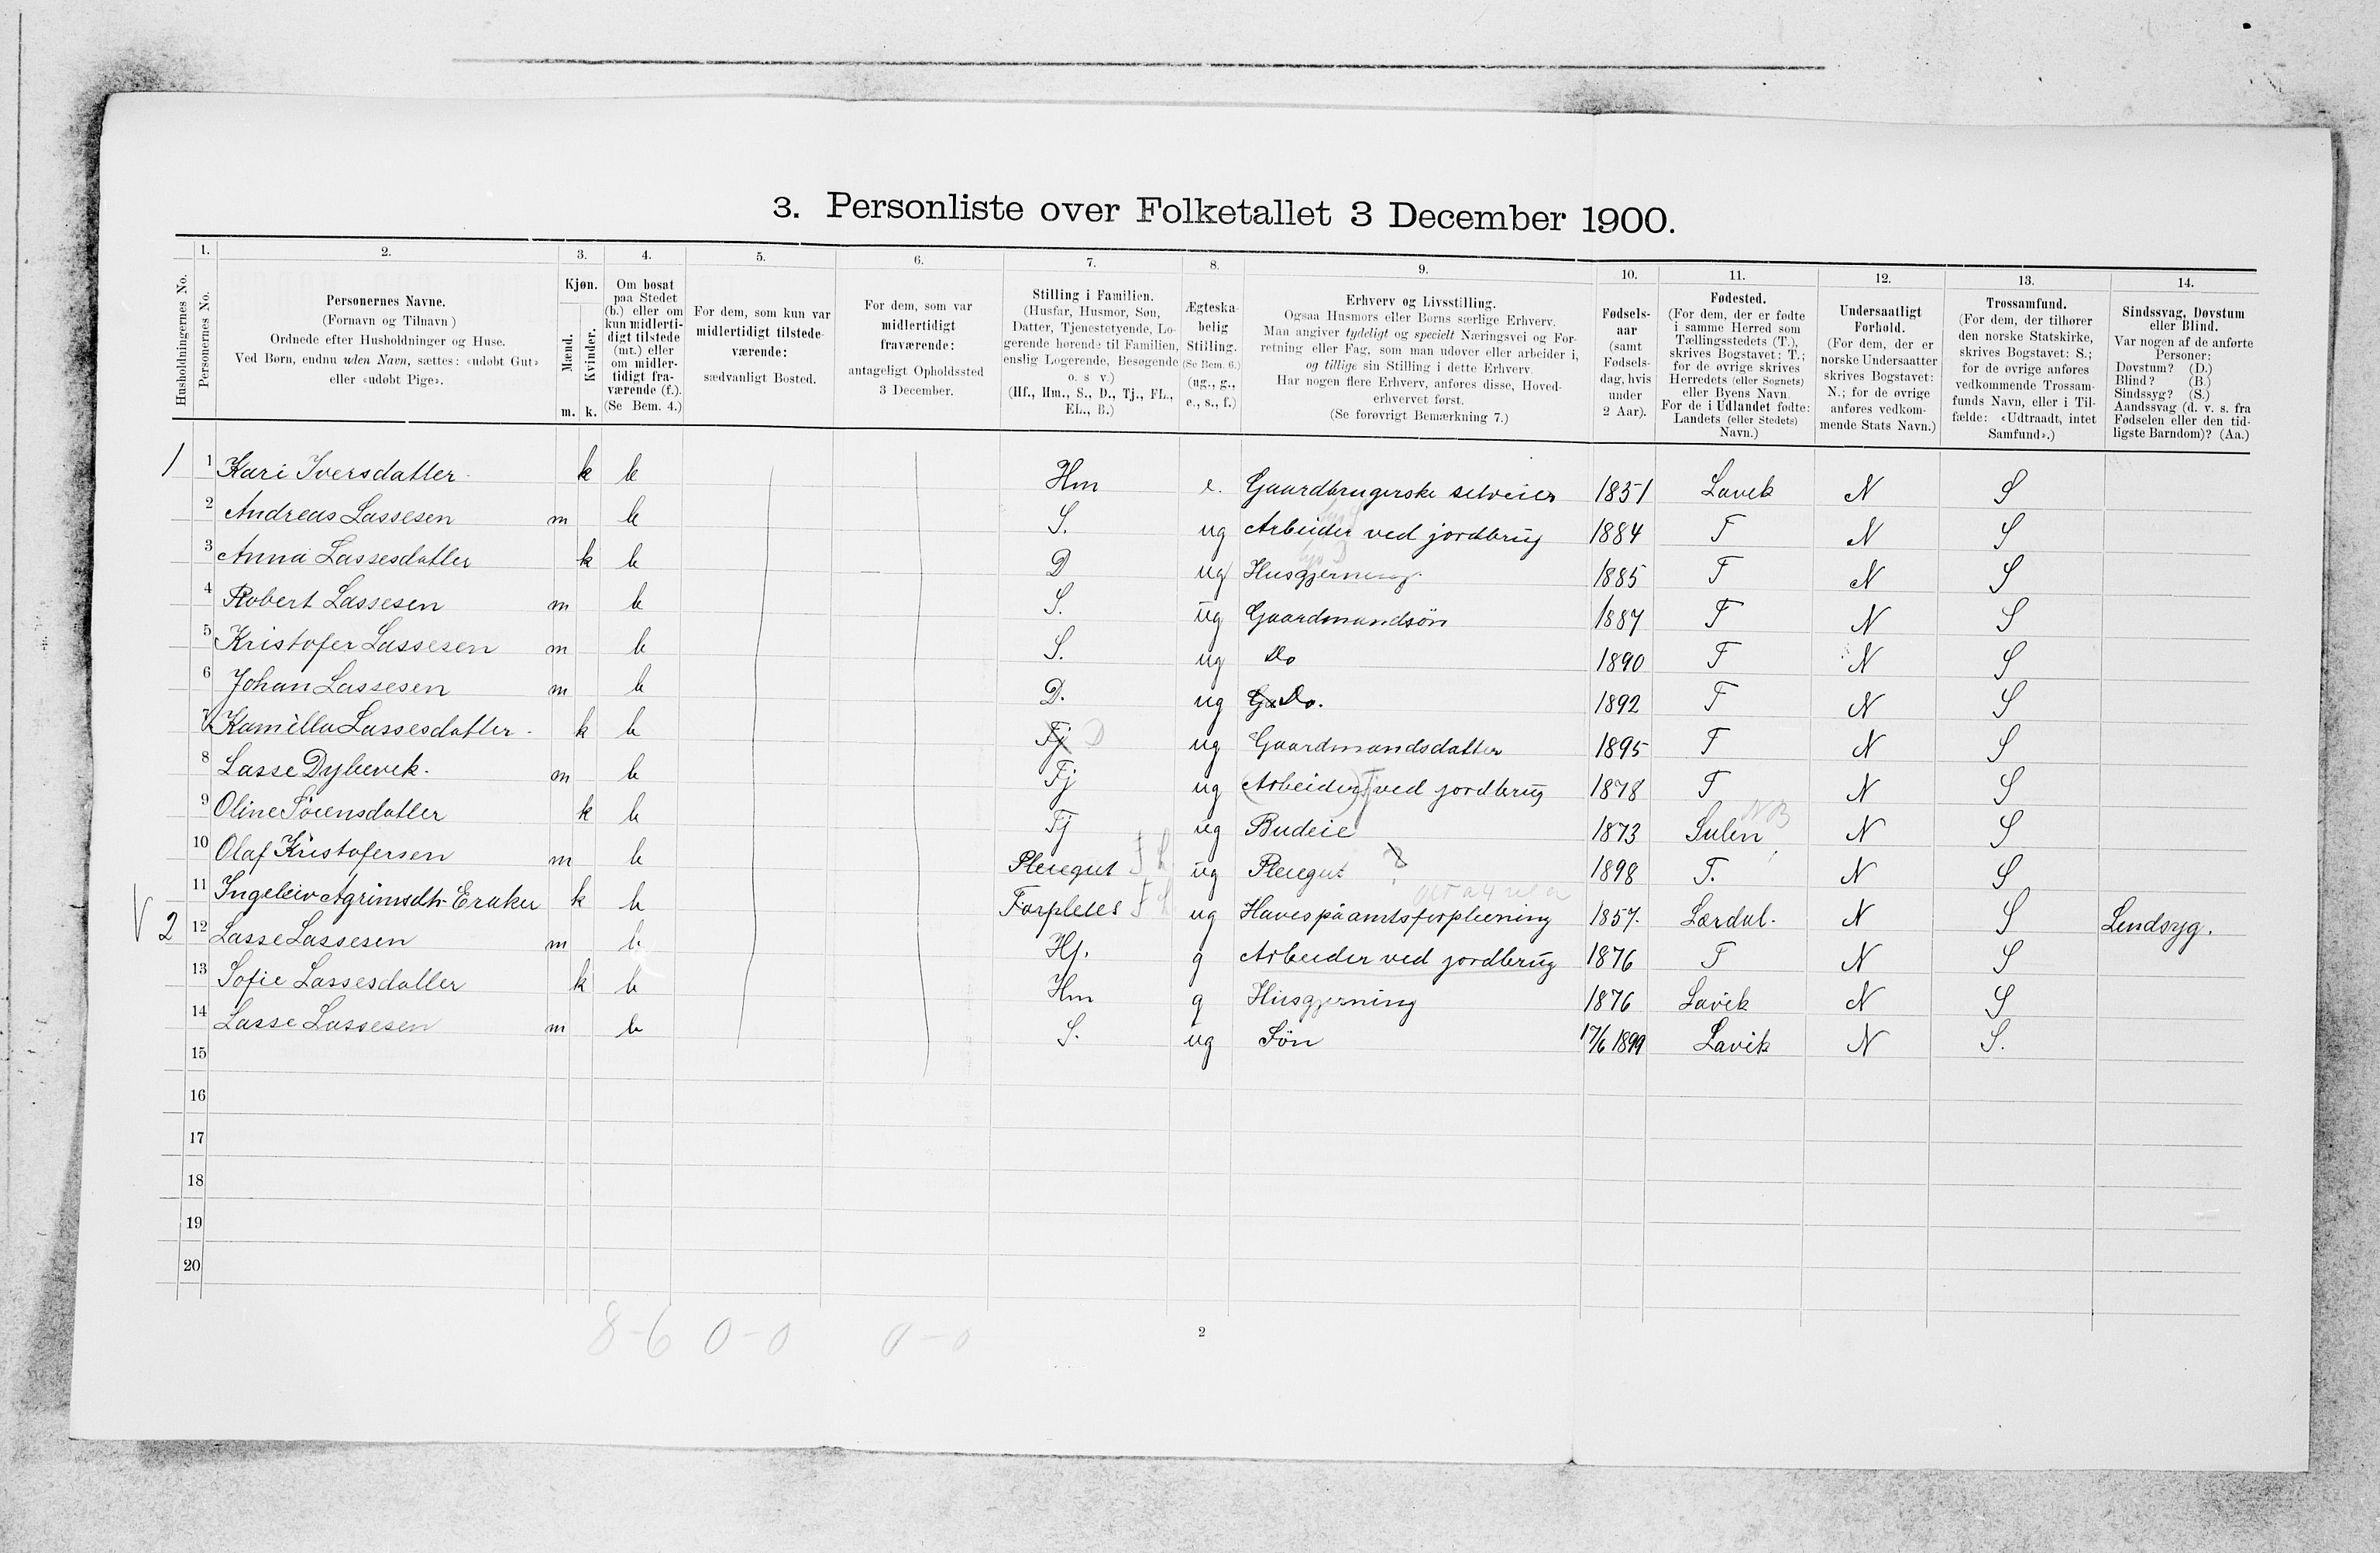 3. Personliste over Folketallet 3 December 1900.
1. 2. 3. 4. 5. 6. 7. 8. 9. 10. 11. 12. 13. 14.
Husholdningernes No.
Personernes No.
Personernes Navne.
(Fornavn og Tilnavn)
Ordnede efter Husholdninger og Huse.
Ved Børn, endnu uden Navn, sættes: «udøbt Gut»
eller «udøbt Pige».
Kjøn.
Mænd.
Kvinder.
m. k.
Om bosat
paa Stedet
(b.) eller om
kun midlerti-
digt tilstede
(mt.) eller
om midler-
tidigt fra-
værende (f.).
(Se Bem. 4.)
For dem, som kun var
midlertidigt tilstede-
værende:
sædvanligt Bosted.
For dem, som var
midlertidigt
fraværende:
antageligt Opholdssted
3 December.
Stilling i Familien.
(Husfar, Husmor, Søn,
Datter, Tjenestetyende, Lo-
gerende hørende til Familien,
enslig Logerende, Besøgende
o. s. v.)
(Hf., Hm., S., D., Tj., FL.,
EL., B.)
Ægteska-
belig
Stilling.
(Se Bem. 6.)
(ug., g.,
e., s., f.)
Erhverv og Livsstilling.
Ogsaa Husmors eller Børns særlige Erhverv.
Man angiver tydeligt og specielt Næringsvei og For-
retning eller Fag, som man udøver eller arbeider i,
og tillige sin Stilling i dette Erhverv.
Har nogen flere Erhverv, anføres disse, Hoved-
erhvervet først.
(Se forøvrigt Bemærkning 7.)
Fødsels-
aar
(samt
Fødsels-
dag, hvis
under
2 Aar).
Fødested.
(For dem, der er fødte
i samme Herred som
Tællingsstedets (T.),
skrives Bogstavet: T.;
for de øvrige skrives
Herredets (eller Sognets)
eller Byens Navn.
For de i Udlandet fødte:
Landets (eller Stedets)
Navn.)
Undersaatligt
Forhold.
(For dem, der er
norske Undersaatter
skrives Bogstavet:
N.; for de øvrige
anføres vedkom-
mende Stats Navn.)
Trossamfund.
(For dem, der tilhører
den norske Statskirke,
skrives Bogstavet: S.;
for de øvrige anføres
vedkommende Trossam-
funds Navn, eller i Til-
fælde: «Udtraadt, intet
Samfund».)
Sindssvag, Døvstum
eller Blind.
Var nogen af de anførte
Personer:
Døvstum? (D.)
Blind? (B.)
Sindssyg? (S.)
Aandssvag (d. v. s. fra
Fødselen eller den tid-
ligste Barndom)? (Aa.)
1 1 Kari Iversdatter k b Hm e. Gaardbrugerske selveier 1851 Lavik N S
2 Andreas Lassesen m b S. ug Arbeider ved jordbrug 1884 T N S
3 Anna Lassesdatter k b D ug Husgjerning 1885 T N S
4 Robert Lassesen m b S. ug Gaardmandsøn 1887 T N S
5 Kristofer Lassesen m b S. ug Do 1890 T N S
6 Johan Lassesen m b D. ug Do. 1892 T N S
7 Kamilla Lassesdatter k b Tj D ug Gaardmandsdatter 1895 T N S
8 Lasse Dybevik. m b Tj ug (Arbeider) Tj ved jordbrug 1878 T N S
9 Oline Søiensdatter k b Tj ug Budeie 1873 Sulen NB N S
10 Olaf Kristofersen m b Pleiegut ug Pleiegut 1898 T. N S
11 Ingeleiv Agrimsdtr Eraker k b Forpleies ug Haves på amtsforpleining 1857. Lærdal. N S Sindsyg.
V 2 12 Lasse Lassesen m b Hf. g Arbeider ved jordbrug 1876 T N S
13 Sofie Lassesdatter k b Hm g Husgjerning 1876 Lavik N S
14 Lasse Lassesen m b S. ug Søn 17/6 1899 Lavik N S.
15
16
17
18
19
20
8-6 0-0 0-0
2